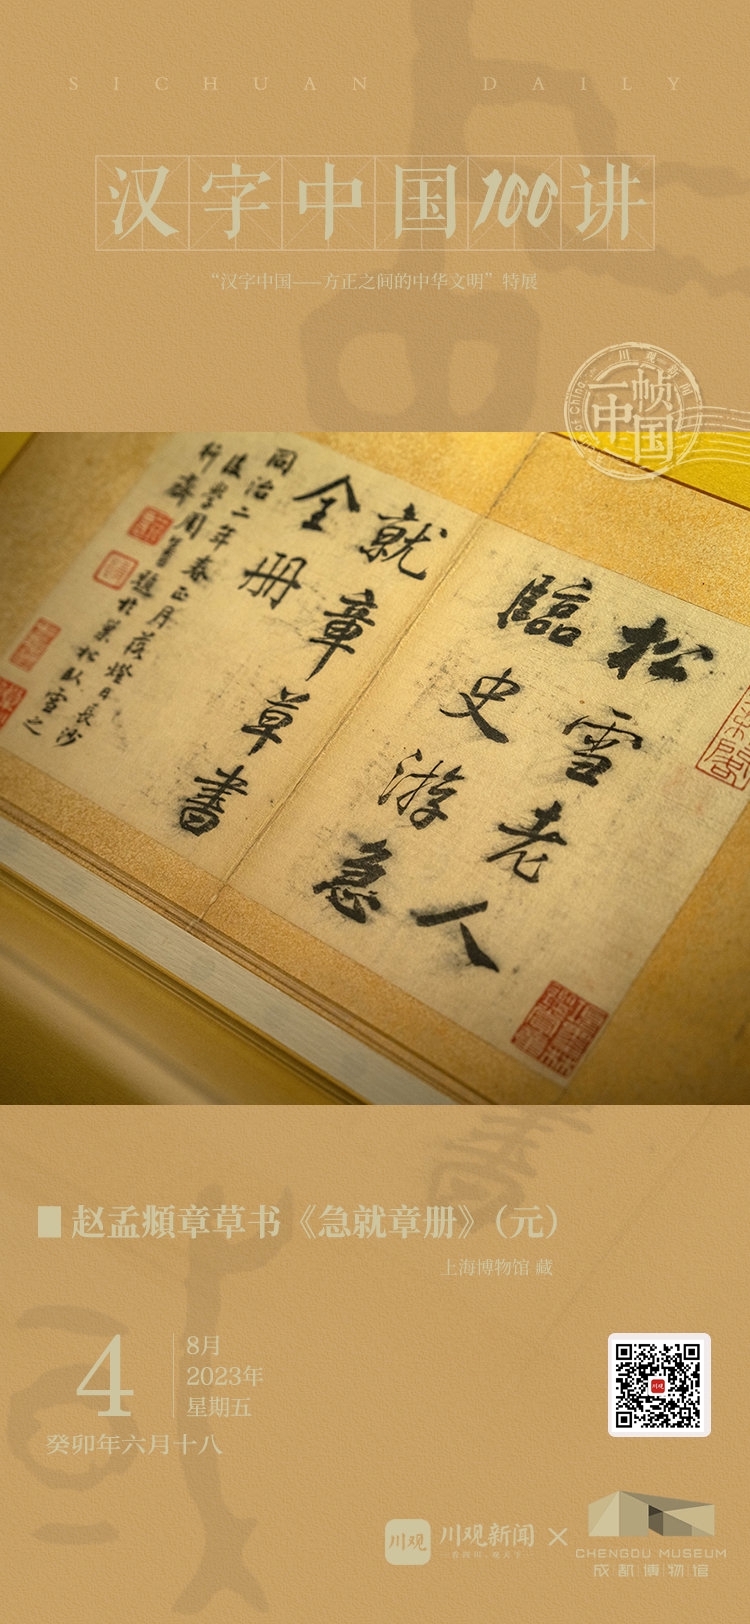 SICHUAN DAILY
汉字中国100讲
“汉字中国——方正之间的中华文明”特展
川观新闻
一帧
中国
松雪老人
臨史游急
就章草書
全册
同治二年春正月
上海博物馆 藏
赵孟頫章草书《急就章册》（元）
4
8月
2023年
星期五
癸卯年六月十八
川观
川观新闻
×
CHENGDU MUSEUM
成都博物馆